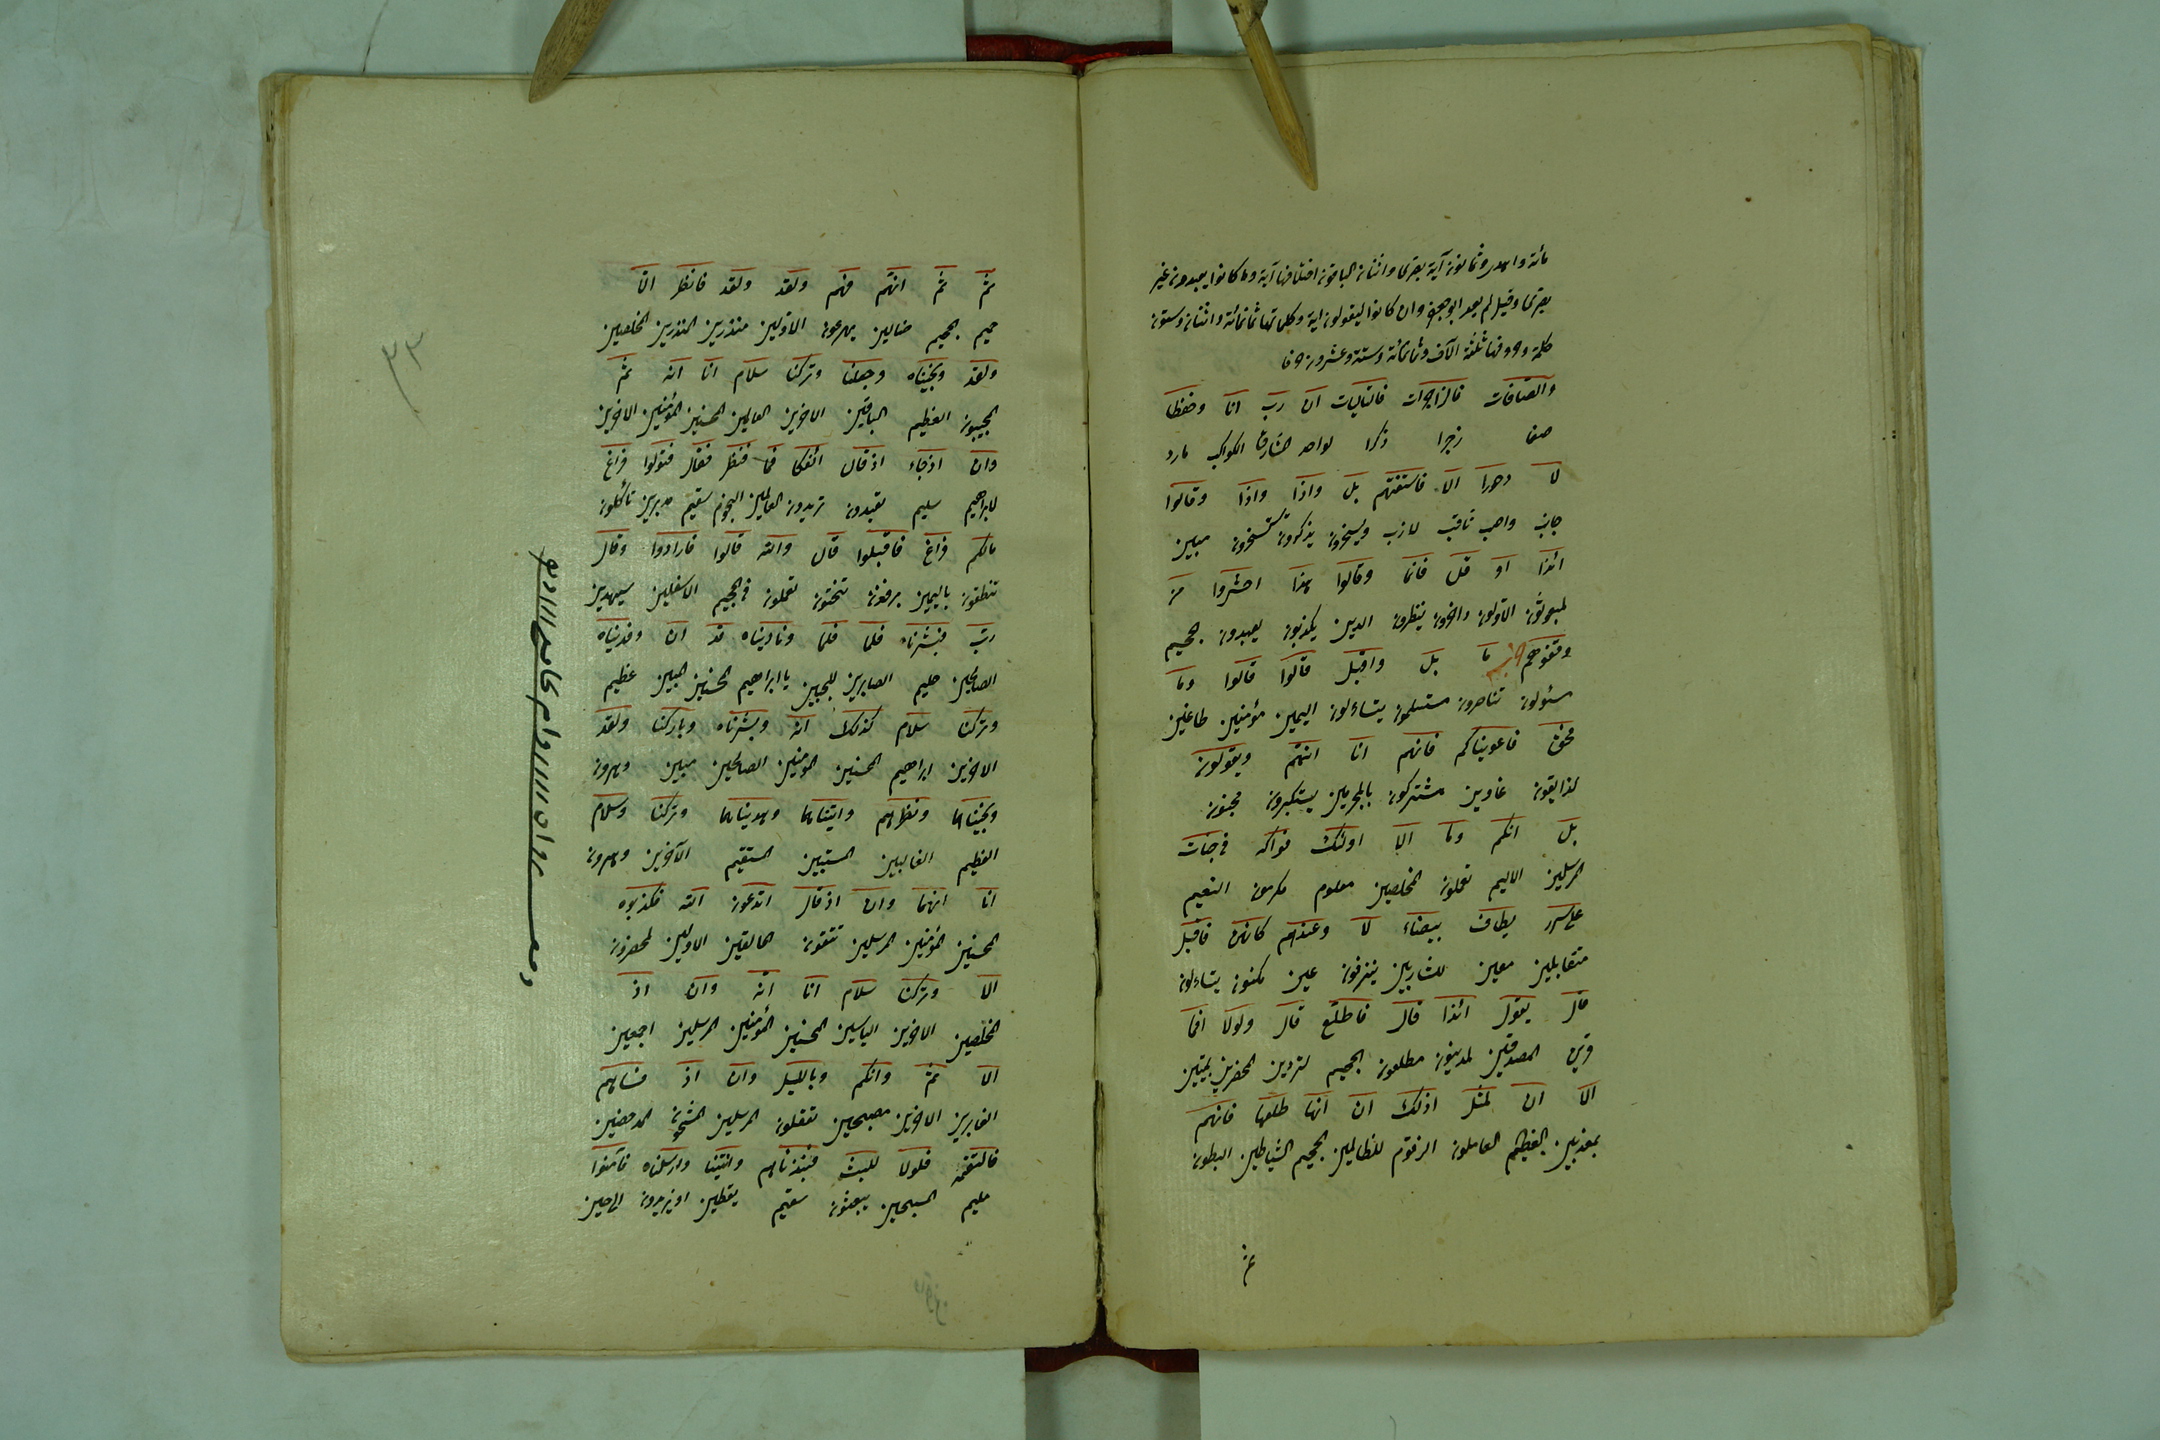 مائة واحدى وثمانون آية بصرى واثنان الباقون اختلافها آية وما كانوا يعبدون غير
بصرى وقيل لم يعد ابو جعفر وان كانوا ليقولون اية وكلماتها ثمانمائة واثنان وستون
كلمة وحروفها ثلثة الآف وثمانمائة وستة وعشرون حرفا
والصافات فالزاجرات فالتاليات ان رب انا وحفظا
صفا زجرا ذكرا لواحد المشارق الكواكب مارد
لا دحورا الا فاستفتهم بل واذا واذا وقالوا
جانب واصب ثاقب لازب ويسخرون يذكرون يستسخرون مبين
ائذا او قل فانما وقالوا هذا احشروا من
لمبعوثون الاولون داخرون ينظرون الدين يكذبون يعبدون جحيم
وقفوهم ما بل واقبل قالوا قالوا وما
مسئولون تناصرون مستسلمون يتساءلون اليمين مؤمنين طاغين
فحق فاغويناكم فانهم انا انهم ويقولون
لذايقون غاوين مشتركون بالمجرمين يستكبرون مجنون
بل انكم وما الا اولئك فواكه فى جنات
المرسلين الاليم تعملون المخلصين معلوم مكرمون النعيم
على سرر يطاف بيضاء لا وعندهم كانهن فاقبل
متقابلين معين للشاربين ينزفون عين مكنون يتساءلون
قال يقول ائذا قال فاطلع قال ولولا افما
قرين المصدقين لمدينون مطلعون الجحيم لتردين المحضرين بميتين
الا ان لمثل اذلك انا انها طلعها فانهم
بمعذبين العظيم العاملون الزقوم للظالمين الجحيم الشياطين البطون
ثم
٣٣
ثم ثم انهم فهم ولقد ولقد فانظر الا
حميم الجحيم ضالين يهرعون الاولين منذرين المنذرين المخلصين
ولقد ونجيناه وجعلنا وتركنا سلام انا انه ثم
المجيبون العظيم الباقين الاخرين العالمين المحسنين المؤمنين الاخرين
وان اذ جاء اذ قال ائفكا فما فنظر فقال فتولوا فراغ
لابراهيم سليم تعبدون تريدون العالمين النجوم سقيم مدبرين تأكلون
مالكم فراغ فاقبلوا قال والله قالوا فارادوا وقال
تنطقون باليمين يزفون تنحتون تعملون فى الجحيم الاسفلين سيهدين
رب فبشرناه فلما فلما وناديناه قد ان وفديناه
الصالحين حليم الصابرين للجبين يا ابراهيم المحسنين المبين عظيم
وتركنا سلام كذلك انه وبشرناه وباركنا ولقد
الاخرين ابراهيم المحسنين المؤمنين الصالحين مبين وهرون
ونجيناهما ونصرناهم واتيناهما وهديناهما وتركنا وسلام
العظيم الغالبين المستبين المستقيم الآخرين وهرون
انا انهما وان اذ قال اتدعون الله فكذبوه
المحسنين المؤمنين المرسلين تتقون الخالقين الاولين لمحضرون
الا وتركنا سلام انا انه وان اذ
المخلصين الاخرين الياسين المحسنين المؤمنين المرسلين اجمعين
الا ثم وانكم وبالليل وان اذ فساهم
الغابرين الاخرين مصبحين تعقلون المرسلين المشحون المدحضين
فالتقمه فلولا للبث فنبذناه وانبتنا وارسلناه فآمنوا
مليم المسبحين يبعثون سقيم يقطين او يزيدون الى حين